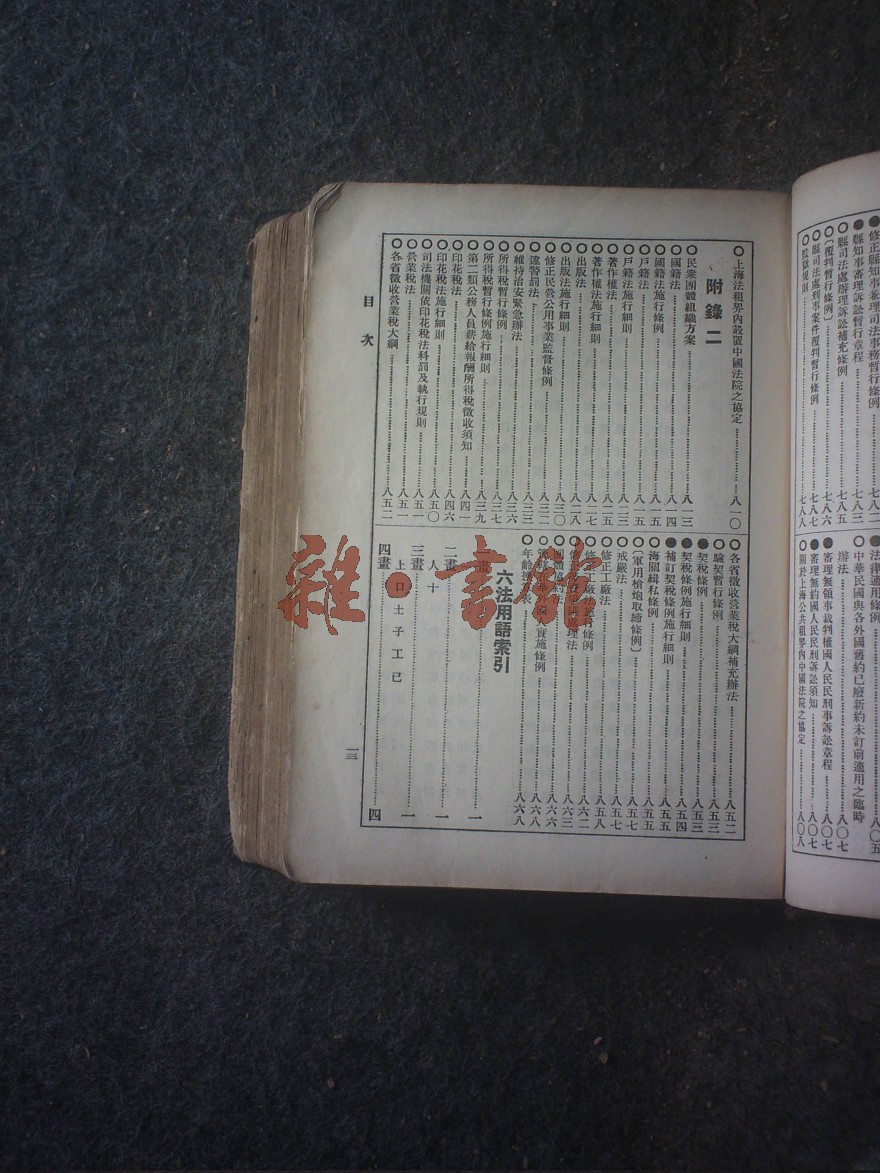 修正縣知事兼理司法事務暫行條例
●縣知事審理訴訟暫行章程
縣司法處辦理訴訟補充條例 七八五
〔覆判暫行條例〕 七八六
○縣司法處刑事案件覆判暫行條例 七八七
○監獄規則 七八八
●法律適用條例 八〇五
○中華民國與各外國舊約已廢新約未訂前適用之臨時
辦法 八〇七
●審理無領事裁判權國人民民刑事訴訟章程 八〇七
●審理無約國人民民刑訴訟須知 八〇七
○關於上海公共租界內中國法院之協定 八〇八
○上海法租界內設置中國法院之協定 八一〇
附錄二
○民衆團體組織方案 八一三
○國籍法 八一四
○國籍法施行條例 八一五
○戶籍法 八一五
○戶籍法施行細則 八二三
○著作權法 八二五
○著作權法施行細則 八二七
○出版法 八二八
○出版法施行細則 八三〇
○修正民營公用事業監督條例 八三二
○違警罰法 八三三
○維持治安緊急辦法 八三六
○所得稅暫行條例 八三七
○所得稅暫行條例施行細則 八三九
○第二類公務人員薪給報酬所得稅徵收須知 八四一
○印花稅法 八四六
○印花稅法施行細則 八五〇
○司法機關依印花稅法科罰及執行規則 八五一
○營業稅法 八五一
○各省徵收營業稅大綱 八五二
○各省徵收營業稅大綱補充辦法 八五二
○驗契暫行條例 八五三
●契稅條例 八五三
●契稅條例施行細則 八五四
●補訂契稅條例施行細則 八五五
○海關緝私條例 八五五
〔軍用槍炮取締條例〕 八五七
○戒嚴法 八五七
○修正工廠法 八五八
○修正工廠法施行條例 八六二
法 八六三
○團體協約 八六六
實施條例 八六八
○年齡 表 八六八
六法用語索引
畫 一
二畫
人 十 一
三畫
上 口 土 子 工 已 一
四畫 四
目次
一三
雜·書館